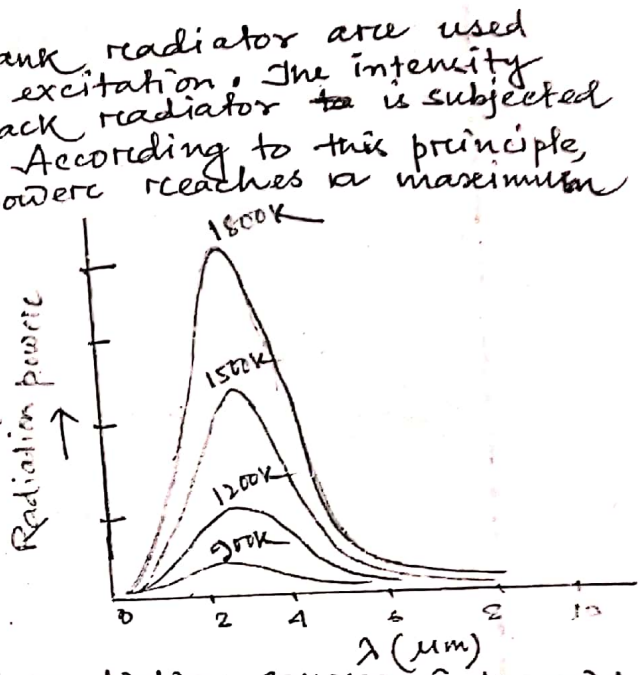 ank radiator are used
excitation. The intensity
ack radiator is subjected
According to this principle,
ower reaches a maximum
1800K
1500K
1200K
900K
Radiation power
0 2 4 6 8 10
λ (μm)